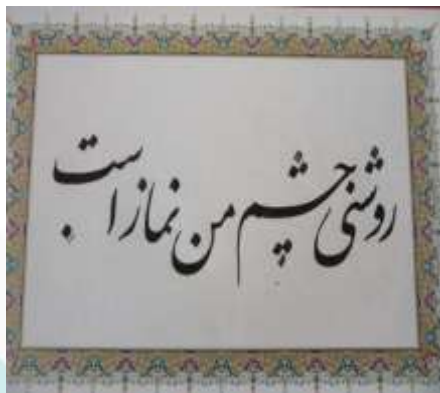 روشنی چشم من نماز است